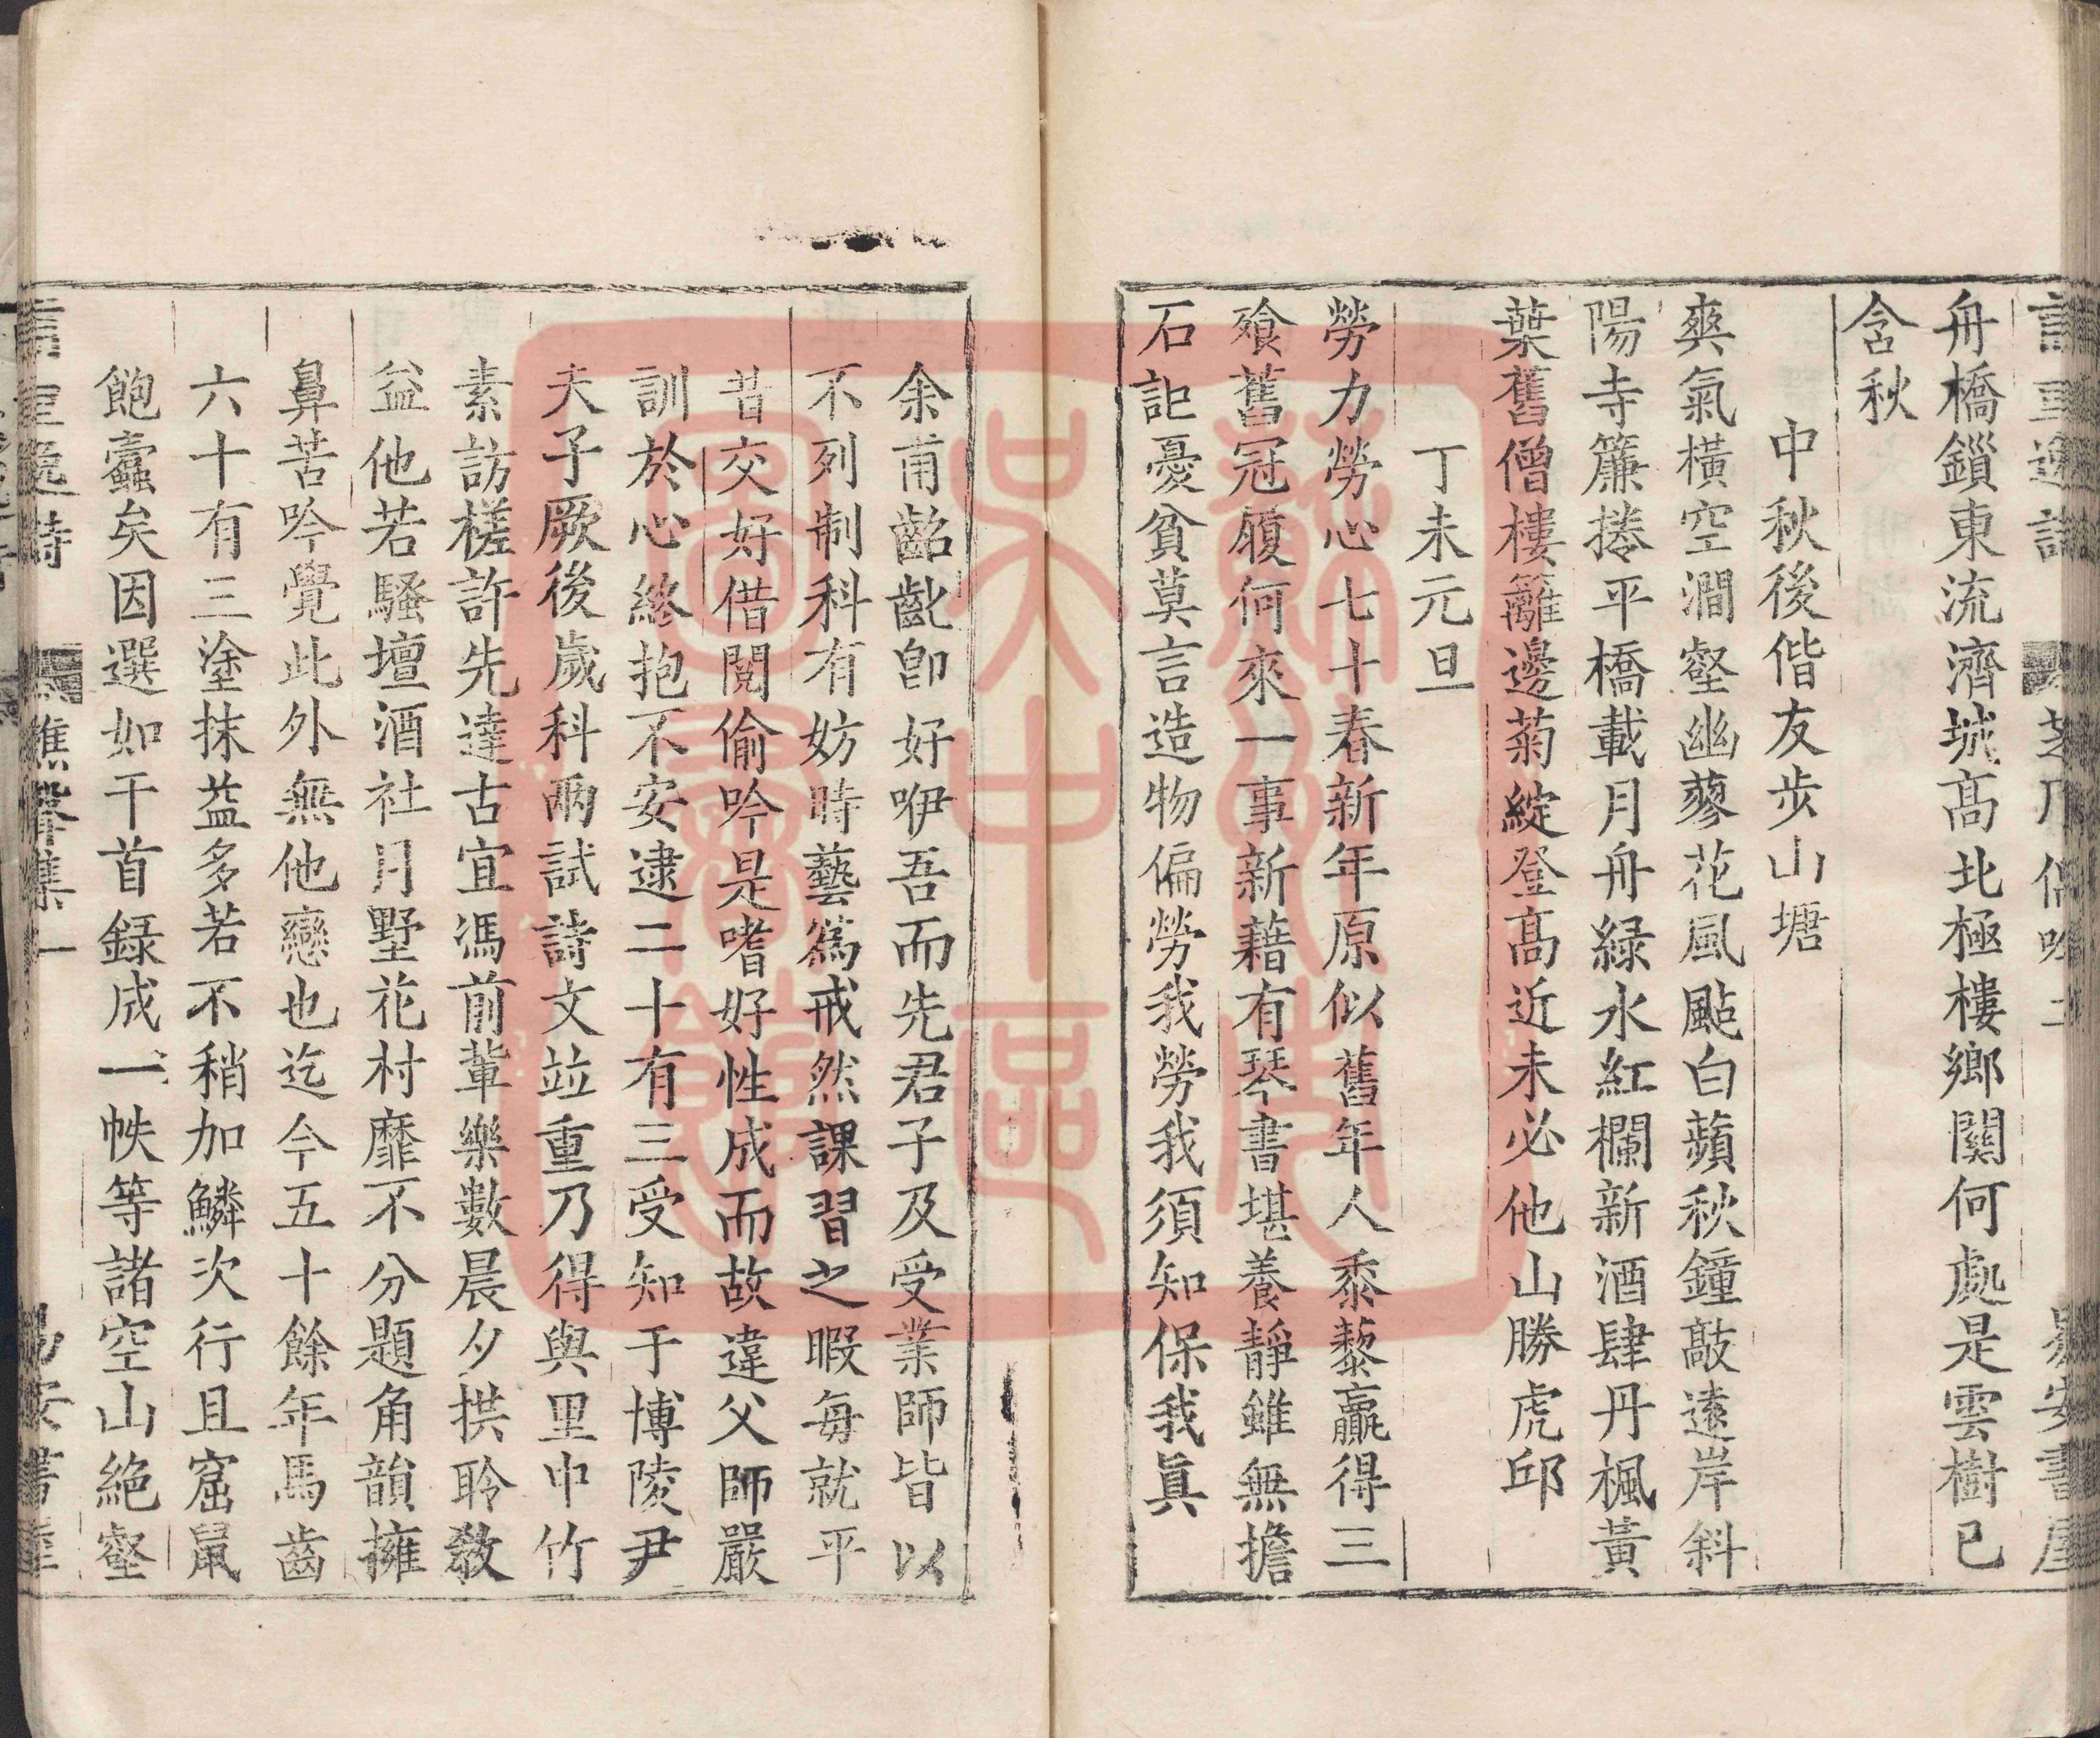 舟橋鎻東流濟城高北極樓鄉關何處是雲樹已
含秋
中秋後偕友步山塘
爽氣橫空澗壑幽蓼花風颭白蘋秋鐘敲遠岸斜
陽寺簾捲平橋載月舟綠水紅欄新酒肆丹楓黃
葉舊僧樓籬邊菊綻登高近未必他山勝虎邱
丁未元旦
勞力勞心七十春新年原似舊年人黍藜贏得三
飧舊冠履何來一事新藉有琴書堪養靜雖無擔
石詎憂貧莫言造物偏勞我勞我須知保我眞
余甫齠齔卽好咿吾而先君子及受業師皆以
不列制科有妨時藝爲戒然課習之暇每就平
昔交好借閱偷吟是嗜好性成而故違父師嚴
訓於心終抱不安逮二十有三受知于博陵尹
夫子厥後歲科兩試詩文竝重乃得與里中竹
素訪槎許先達古宜馮前輩樂數晨夕拱聆敎
益他若騷壇酒社月墅花村靡不分題角韻擁
鼻苦吟覺此外無他戀也迄今五十餘年馬齒
六十有三塗抹益多若不稍加鱗次行且窟鼠
飽蠹矣因選如干首録成一帙等諸空山絶壑
樵聲集一